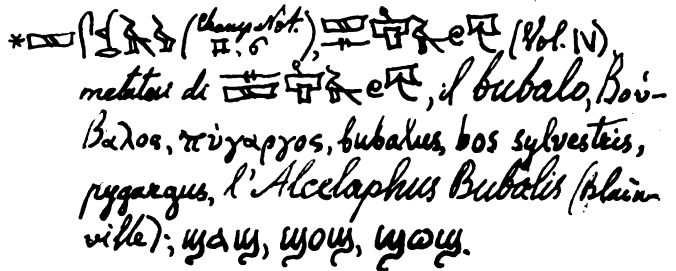 * (Champ. Not. II. 6), (Vol. IV),
metatesi di , il bubalo, Βού-
βαλος, πύγαργος, bubalus, bos sylvestris,
pygargus, l'Alcelaphus Bubalis (Blain-
ville); ϣⲁϣ, ϣⲟϣ, ϣⲱϣ.